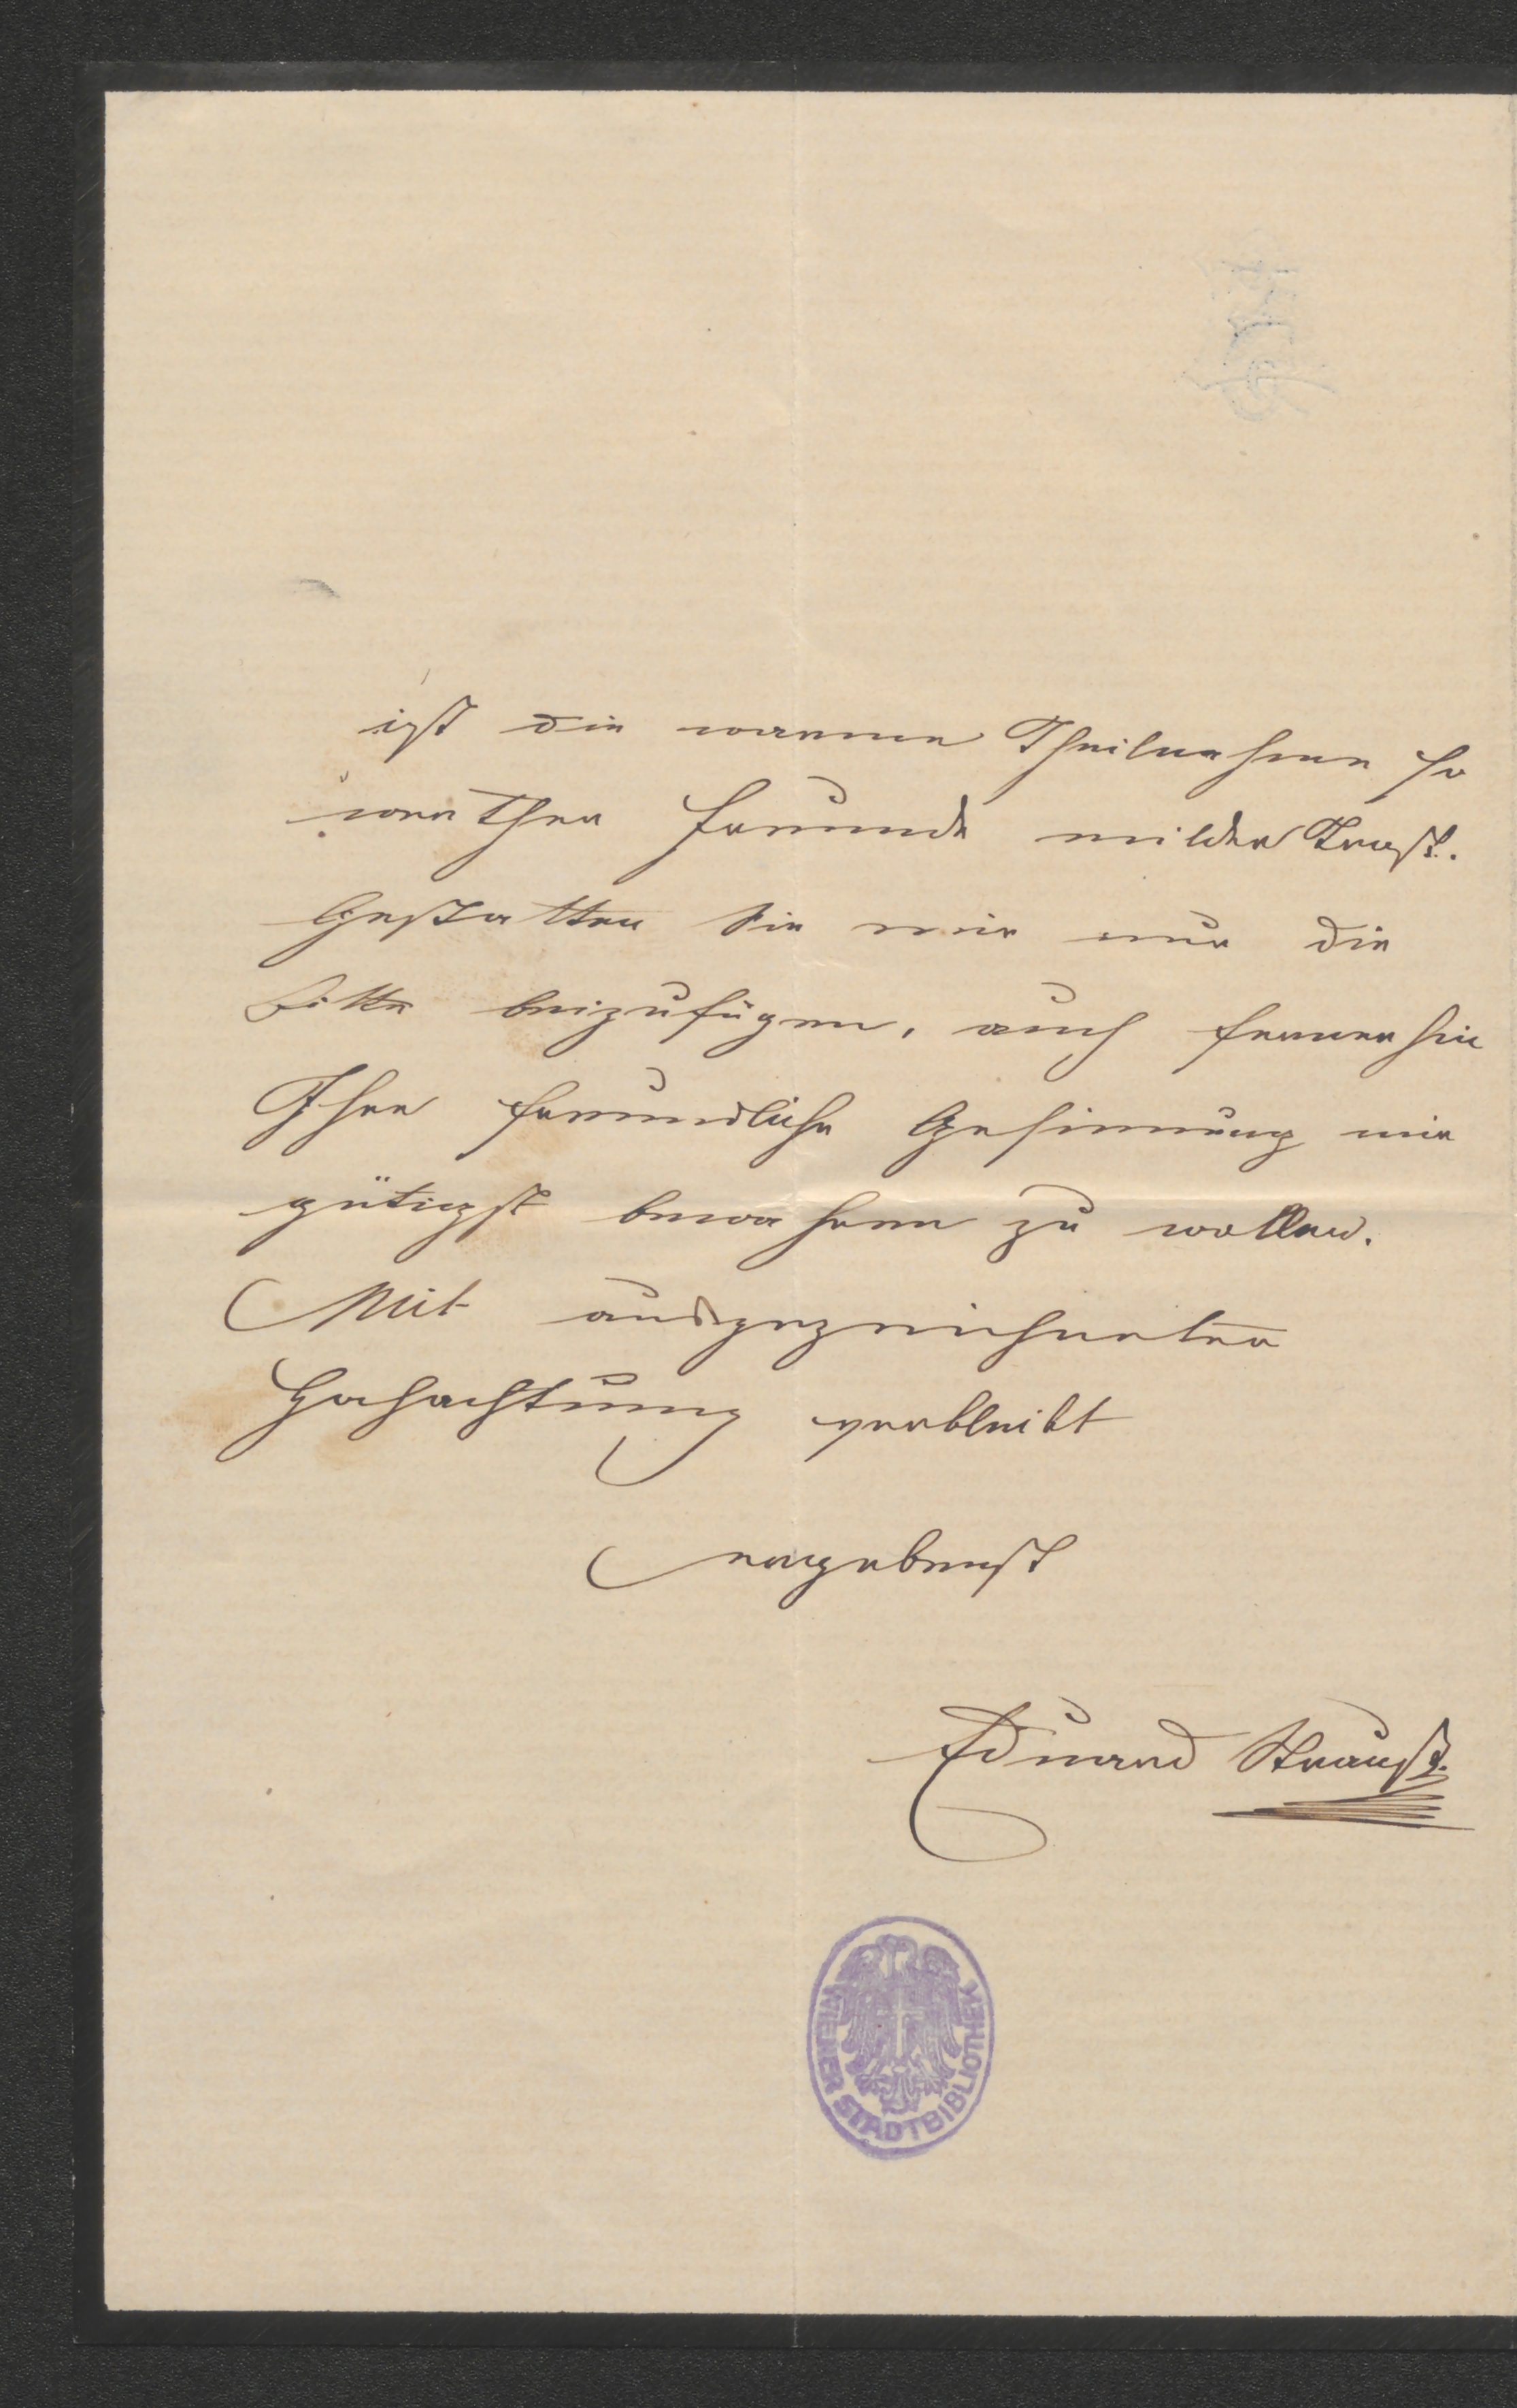 ist die warme Theilnahme so
werther Freunde milder Trost.
Gestatten Sie mir nur die
Bitte beizufügen, auch fernerhin
Ihre freundliche Gesinnung mir
gütigst bewahren zu wollen.
Mit ausgezeichneter
Hochachtung verbleibt
ergebenst
Eduard Strauß.
WIENER STADTBIBLIOTHEK